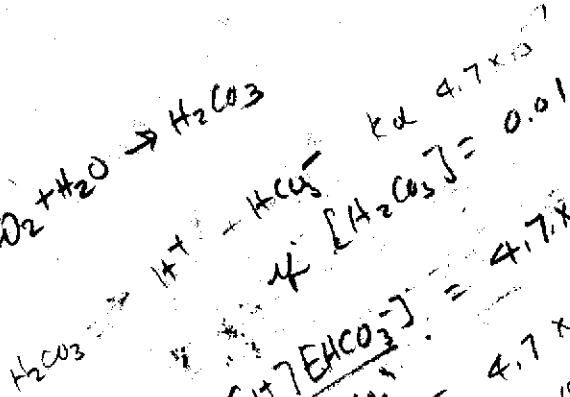 O2 + H2O → H2CO3
H2CO3 → H+ - HCO3- Kα 4.7 × 10-7
if [H2CO3] = 0.01
H+] [HCO3-] = 4.7 ×
= 4.7 ×